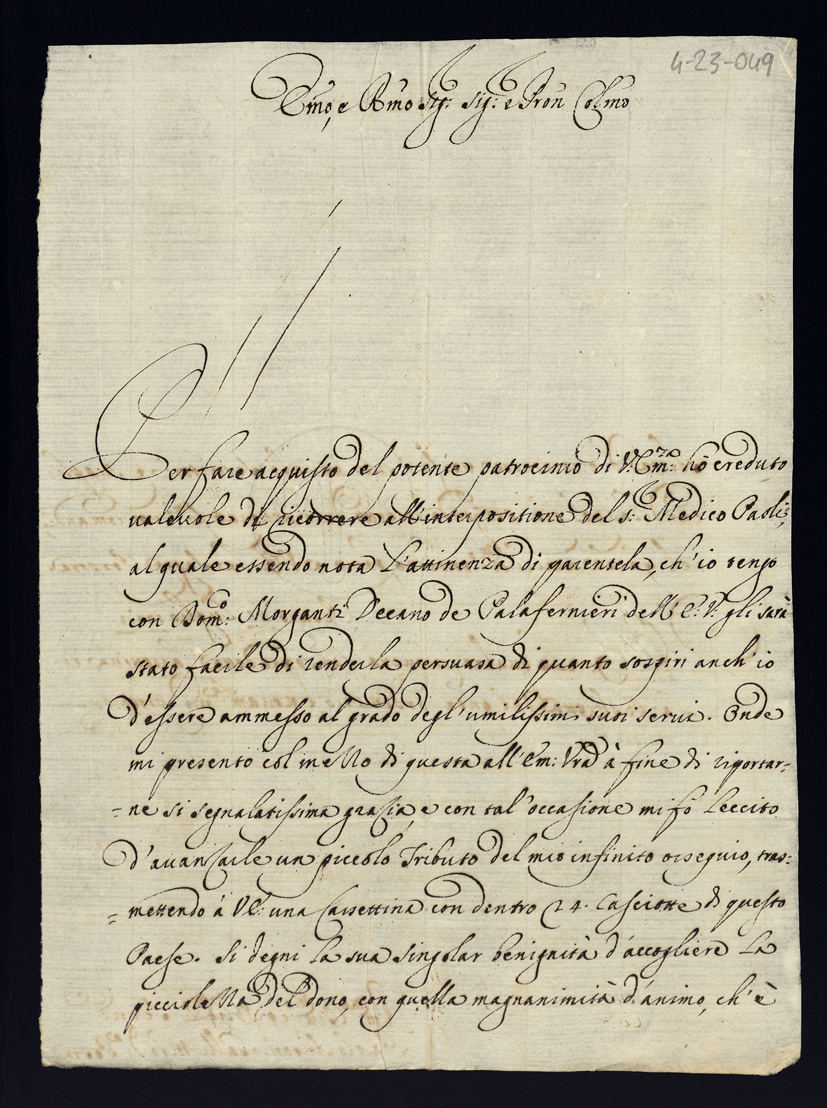 4-23-049
Emo, e Rmo Sig.r Sig.r e Pron Colmo
Per fare acquisto del potente patrocinio di V. Em.za hò creduto
valevole di ricorrere all'interpositione del S.r Medico Paoli,
al quale essendo nota l'attinenza di parentela, ch'io tengo
con Dom.o Morganti Decano de Palafernieri dell'E. V. gli sarà
stato facile di renderla persuasa di quanto sospiri anch'io
d'essere ammesso al grado degl'umilissimi suoi servi. Onde
mi presento col mezzo di questa all'Em: Vra à fine di riportar=
=ne si segnalatissima grazia, e con tal'occasione mi fò leccito
d'avanzarle un piccolo Tributo del mio infinito osseguio, tras=
=mettendo à V.E. una Cassettina con dentro 24. Casciotte di questo
Paese. Si degni la sua singolar benignità d'accogliere la
picciolezza del dono, con quella magnanimità d'animo, ch'è